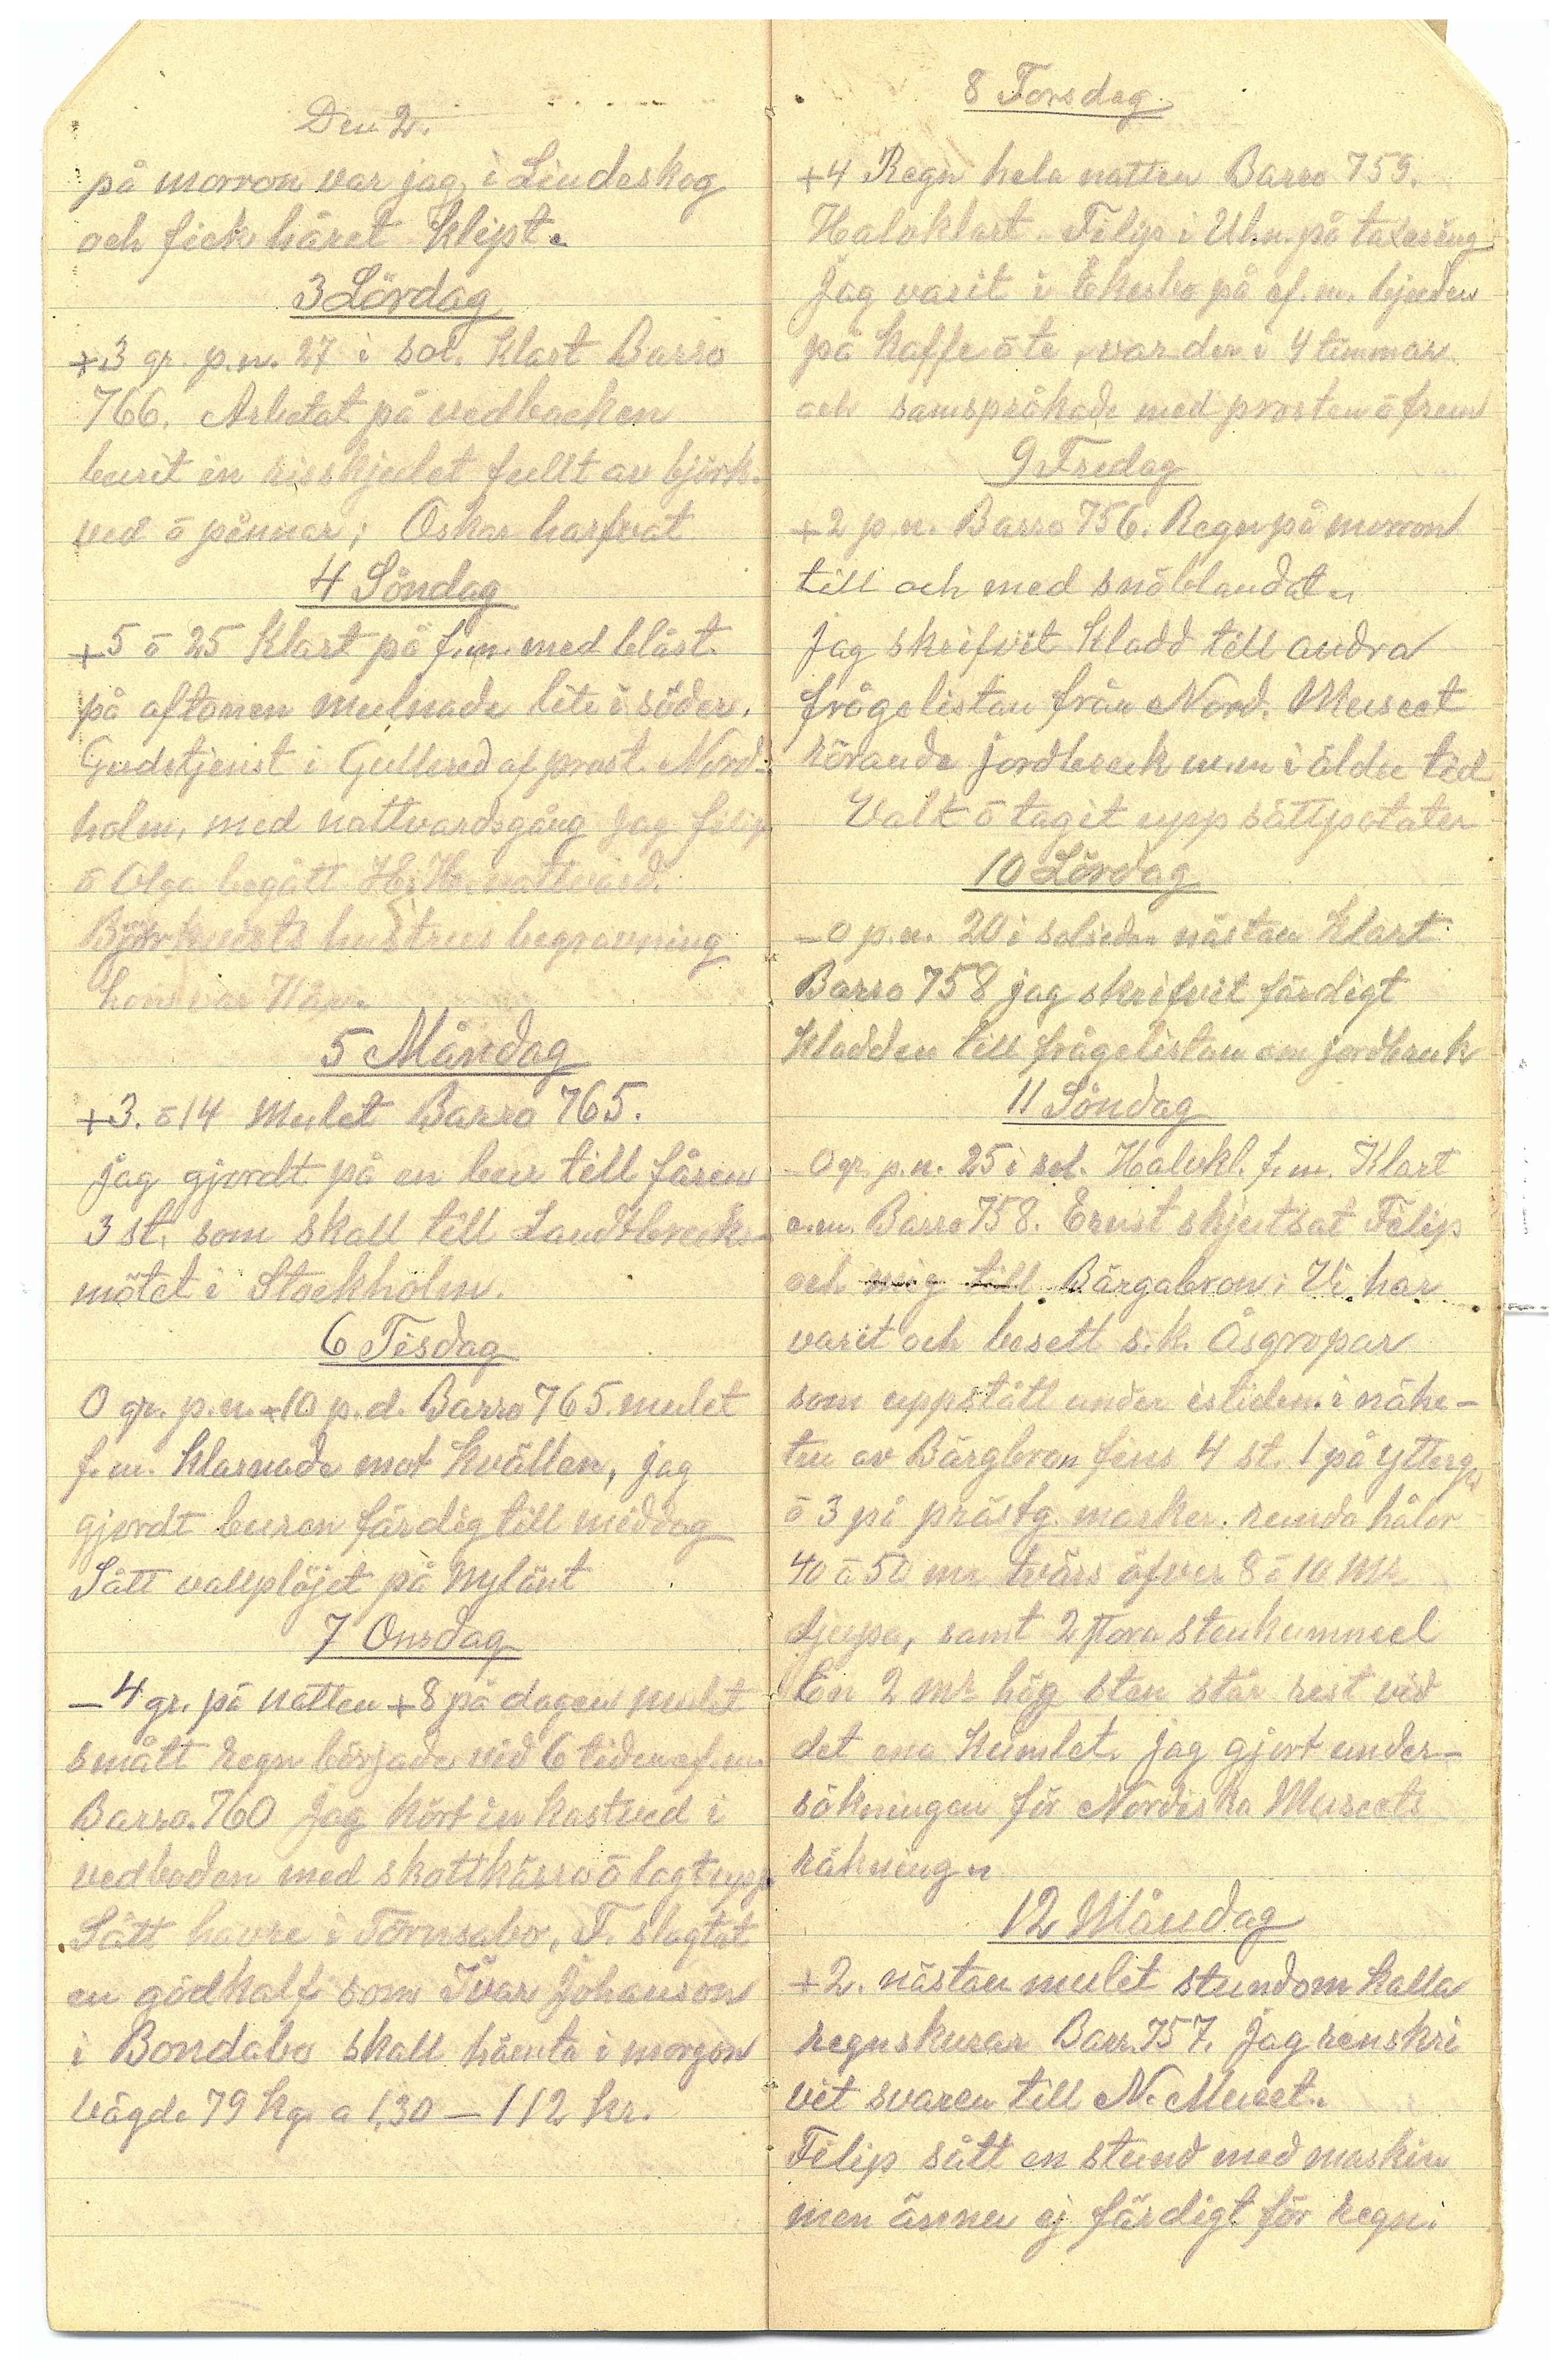 Den 2.
på morron var jag i Lindeskog
och fick håret klipt.
3 Lördag
+3 gr. p.n. 27 i sol. Klart Barro
766. Arbetat på vedbacken
burit in risskjulet fullt av björk.
ved ō pinnar; Oskar harfvat
4 Söndag
+5 ō 25 Klart på f.m. med blåst.
på aftonen mulnade lite i söder.
Gudstjenst i Gullered af prost. Nord-
holm, med nattvardsgång Jag Filip
ō Olga begått H. H. nattvard.
hustrus begravning
hon var
5 Måndag
+3. ō 14 Mulet Barro 765.
Jag gjordt på en bur till fåren
3 st. som skall till Landtbruks-
mötet i Stockholm.
6 Tisdag
0 gr. p.n. +10 p.d. Barro 765. mulet
f.m. Klarnade mot Kvällen, jag
gjordt buren färdig till middag
Sått vallplöjet på Nylänt
7 Onsdag
-4 gr. på natten +8 på dagen mulet
smått regn började vid 6 tiden ef.m.
Barro. 760 Jag kört in kastved i
vedboden med skottkärra ō lagt upp
Sått havre i Törnsabo. F. slagtat
en gödkalf som Ivar Johanson
i Bondabo skall hämta i morgon
Vägde 79 kg. a 1,30 — 112 kr.
8 Torsdag
+4 Regn hela natten Barro 759.
Halvklart Filip i Uh.n. på taxering
Jag varit i Ekesbo på ef.m. bjuden
på Kaffe ō te, var der i 4 timmar
och samspråkade med prosten ō frun
9 Fredag
+2 p.n. Barro 756. Regn på morron
till och med snöblandat.
Jag skrifvit Kladd till andra
frågelistan från Nord. Museet
rörande jordbruk m.m i äldre tid
Valt ō tagit upp sättpotater
10 Lördag
-0 p.n. 20 i solsidan nästan Klart
Barro 758 jag skrifvit färdigt
Kladden till frågelistan om jordbruk
11 Söndag
-0 gr. p.n. 25 i sol. Halvkl. f.m. Klart
e.m. Barro 758. Ernst skjutsat Filip
och mig till Bärgabron; Vi har
varit och besett s.k. Åsgropar
som uppstått under istiden. i nähe-
ten av Bärgbron fins 4 st. 1 på
ō 3 på prästg. marker. runda hålor
40 ō 50 mr tvärs öfver 8 ō 10 Mr
djupa, samt 2 stora stenkummel
En 2 mr hög sten står rest vid
det ena Kumlet. Jag gjort under-
sökningen för Nordiska Museets
räkning.
12 Måndag
+2. nästan mulet stundom kalla
regnskurar Barr. 757. Jag renskri
vit svaren till N. Museet.
Filip sått en stund med maskin
men ännu ej färdigt för regn.